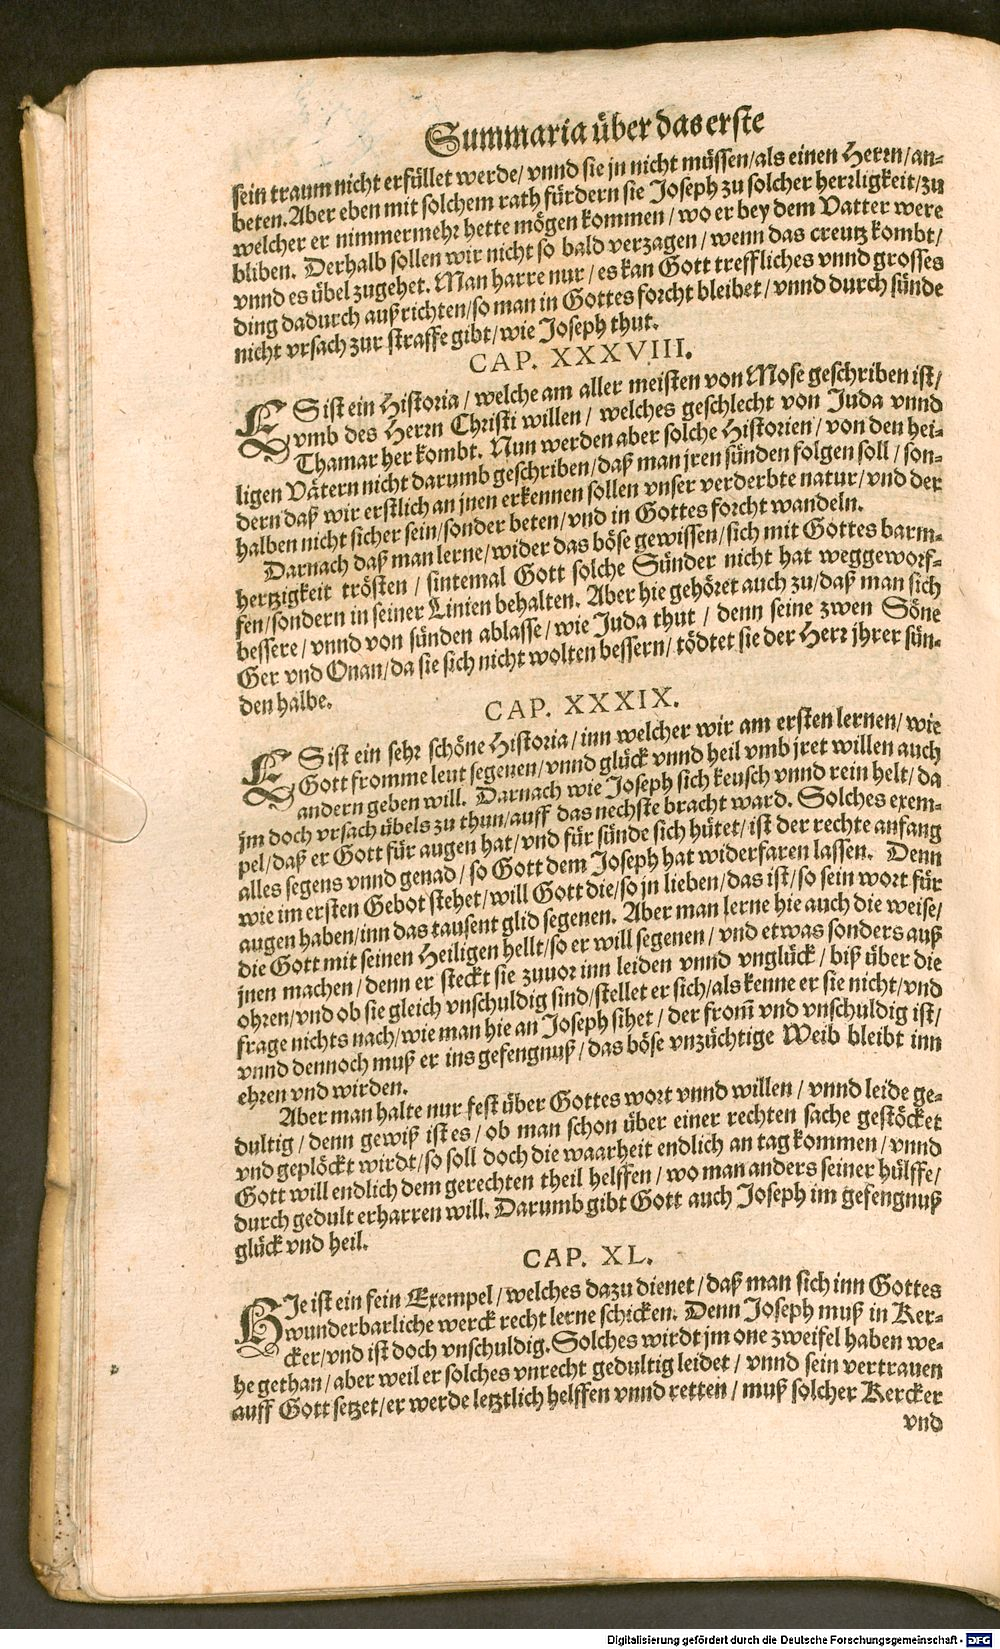 Summaria über das erste
sein traum nicht erfüllet werde/ vnnd sie jn nicht müssen/als einen Herrn/an-
beten. Aber eben mit solchem rath fürdern sie Joseph zu solcher herrligkeit/zu
welcher er nimmermehr hette mögen kommen/ wo er bey dem Vatter were
bliben. Derhalb sollen wir nicht so bald verzagen/ wenn das creutz kombt/
vnnd es übel zugehet. Man harre nur/ es kan Gott treffliches vnnd grosses
ding dadurch außrichten/so man in Gottes forcht bleibet/ vnnd durch sünde
nicht vrsach zur straffe gibt/wie Joseph thut.
CAP. XXXVIII.
ES ist ein Historia/ welche am aller meisten von Mose geschriben ist/
vmb des Herrn Christi willen/ welches geschlecht von Juda vnnd
Thamar her kombt. Nun werden aber solche Historien/ von den hei-
ligen Vätern nicht darumb geschriben/daß man jren sünden folgen soll/ son-
dern daß wir erstlich an jnen erkennen sollen vnser verderbte natur/vnd der
halben nicht sicher sein/sonder beten/vnd in Gottes forcht wandeln.
Darnach daß man lerne/wider das böse gewissen/sich mit Gottes barm-
hertzigkeit trösten/ sintemal Gott solche Sünder nicht hat weggeworf-
fen/sondern in seiner Linien behalten. Aber hie gehöret auch zu/daß man sich
bessere/ vnnd von sünden ablasse/wie Juda thut/ denn seine zwen Söne
Ger vnd Onan/da sie sich nicht wolten bessern/ tödtet sie der Herr jhrer sün-
den halbe.
CAP. XXXIX.
ES ist ein sehr schöne Historia/inn welcher wir am ersten lernen/ wie
Gott fromme leut segenen/vnnd glück vnnd heil vmb jret willen auch
andern geben will. Darnach wie Joseph sich keusch vnnd rein helt/ da
jm doch vrsach übels zu thun/auff das nechste bracht ward. Solches exem-
pel/daß er Gott für augen hat/vnd für sünde sich hütet/ist der rechte anfang
alles segens vnnd genad/ so Gott dem Joseph hat widerfaren lassen. Denn
wie im ersten Gebot stehet/will Gott die/so jn lieben/das ist/so sein wort für
augen haben/inn das tausent glid segenen. Aber man lerne hie auch die weise/
die Gott mit seinen Heiligen hellt/so er will segenen/ vnd etwas sonders auß
jnen machen/ denn er steckt sie zuuor inn leiden vnnd vnglück/ biß über die
ohren/vnd ob sie gleich vnschuldig sind/stellet er sich/als kenne er sie nicht/vnd
frage nichts nach/wie man hie an Joseph sihet/ der from̃ vnd vnschuldig ist/
vnnd dennoch muß er ins gefengnuß/ das böse vnzüchtige Weib bleibt inn
ehren vnd wirden.
Aber man halte nur fest über Gottes wort vnnd willen/ vnnd leide ge-
dultig/ denn gewiß ist es/ ob man schon über einer rechten sache gestöcket
vnd geplöckt wirdt/so soll doch die waarheit endlich an tag kommen/ vnnd
Gott will endlich dem gerechten theil helffen/ wo man anders seiner hülffe/
durch gedult erharren will. Darumb gibt Gott auch Joseph im gefengnuß
glück vnd heil.
CAP. XL.
HIe ist ein fein Exempel/welches dazu dienet/daß man sich inn Gottes
wunderbarliche werck recht lerne schicken. Denn Joseph muß in Ker-
cker/vnd ist doch vnschuldig. Solches wirdt jm one zweifel haben we-
he gethan/aber weil er solches vnrecht gedultig leidet/ vnnd sein vertrauen
auff Gott setzet/er werde letztlich helffen vnnd retten/ muß solcher Kercker
vnd
Digitalisierung gefördert durch die Deutsche Forschungsgemeinschaft - DFG